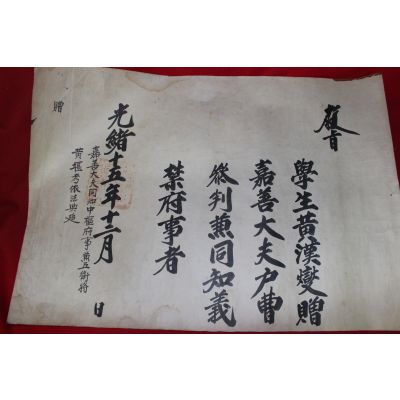 敎旨
學生黃漢燮贈
嘉善大夫戶曹
叅判兼同知義
禁府事者
光緖十五年十二月 日
嘉善大夫同知中樞府事兼五衛將
黃樞考依法典追
贈